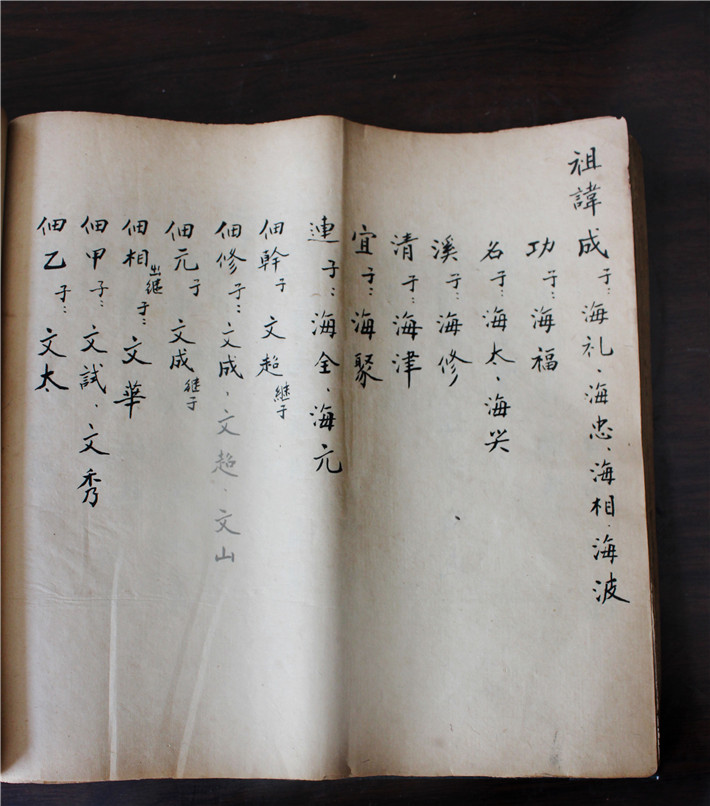 祖諱成子：海礼、海忠、海相、海波
功子：海福
名子：海太、海哭
溪子：海修
清子：海津
宜子：海聚
連子：海全、海元
佃幹子 文超継子
佃修子：文成、文超、文山
佃元子 文成継子
佃相出継子：文華
佃甲子：文試、文秀
佃乙子：文太